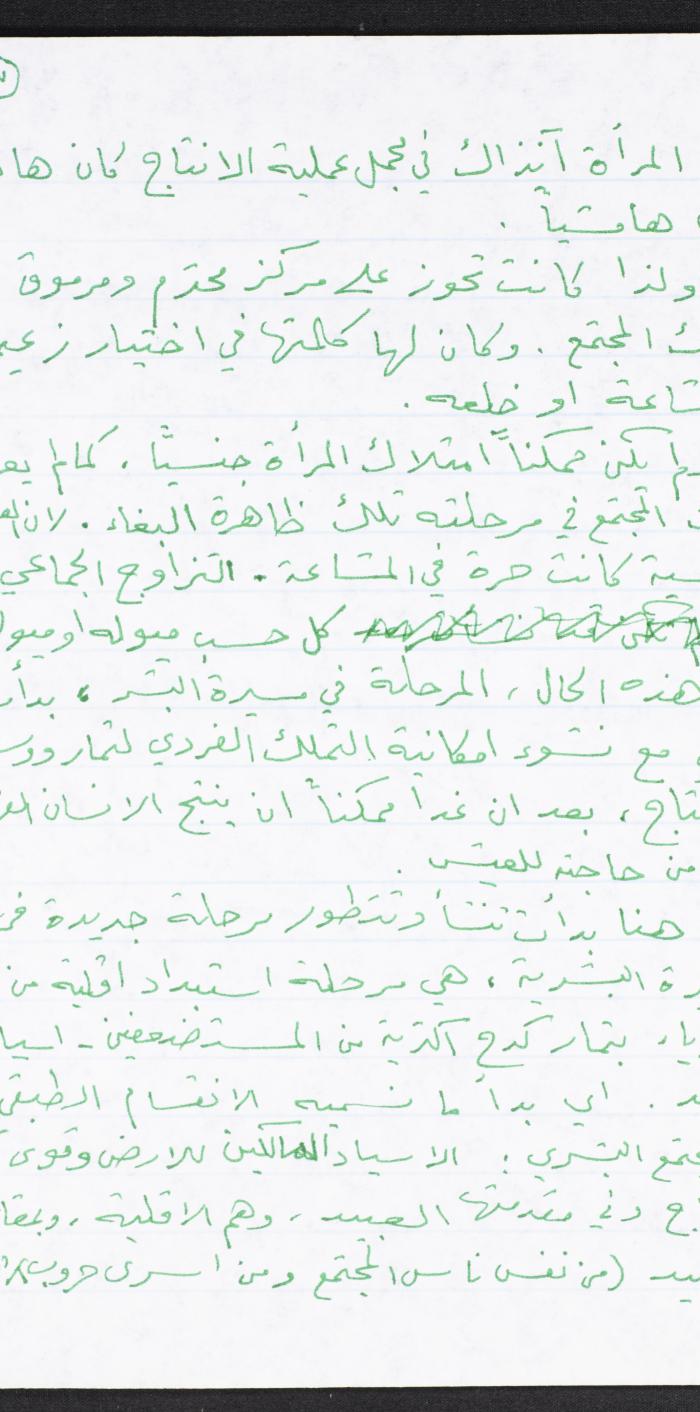 المرأة آنذاك في مجمل عملية الانتاج كان
هامشياً .
ولذا كانت تحوز على مركز محترم ومرموق
المجتمع . وكان لها كلمتها في اختيار
او خلعه .
يكن ممكناً امتلاك المرأة جنسيّاً ، كما لم
المجتمع في مرحلته تلك ظاهرة البغاء . لان
كانت حرة في المشاعة . التزاوج الجماعي
كل حسب ميوله او
هذه الحال ، المرحلة في مسيرة البشر ،
مع نشوء امكانية التملك الفردي لثمار
، بعد ان غدا ممكناً ان ينتج الانسان
من حاجته للعيش .
هنا بدأت تنشأ وتتطور مرحلة جديدة
البشرية ، هي مرحلة استبداد اقلية من
بثمار كدح اكثرية من المستضعفين -
. اي بدأ ما نسميه الانقسام الطبقي
البشري : الاسياد المالكين للارض وقوى
وفي مقدمتها العبيد ، وهم الاقلية ،
(من نفس ناس المجتمع ومن اسرى حروب